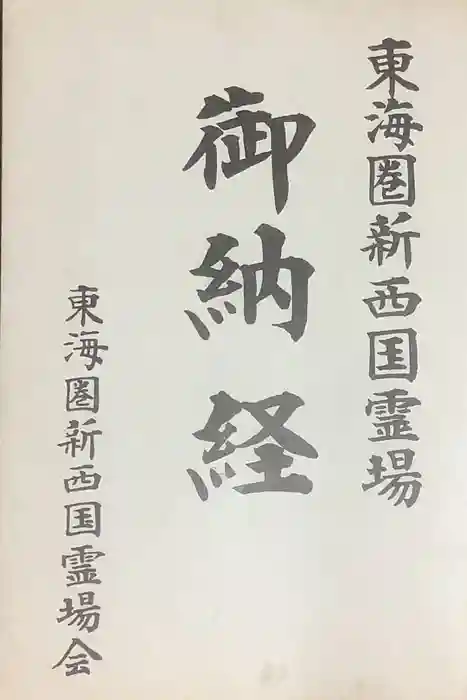 東海圏新西国霊場
御納経
東海圏新西国霊場会